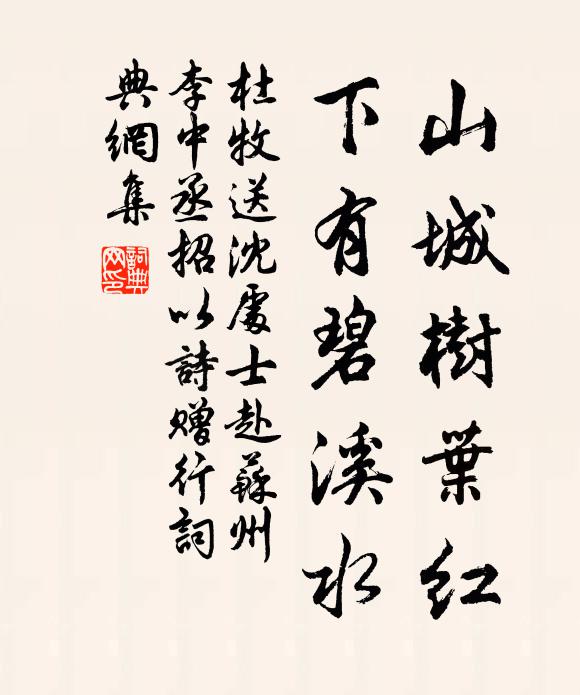 山城樹葉紅
下有碧溪水
杜牧送沈處士赴蘇州
李中丞招以詩贈行詞
典網集
詞典
网印